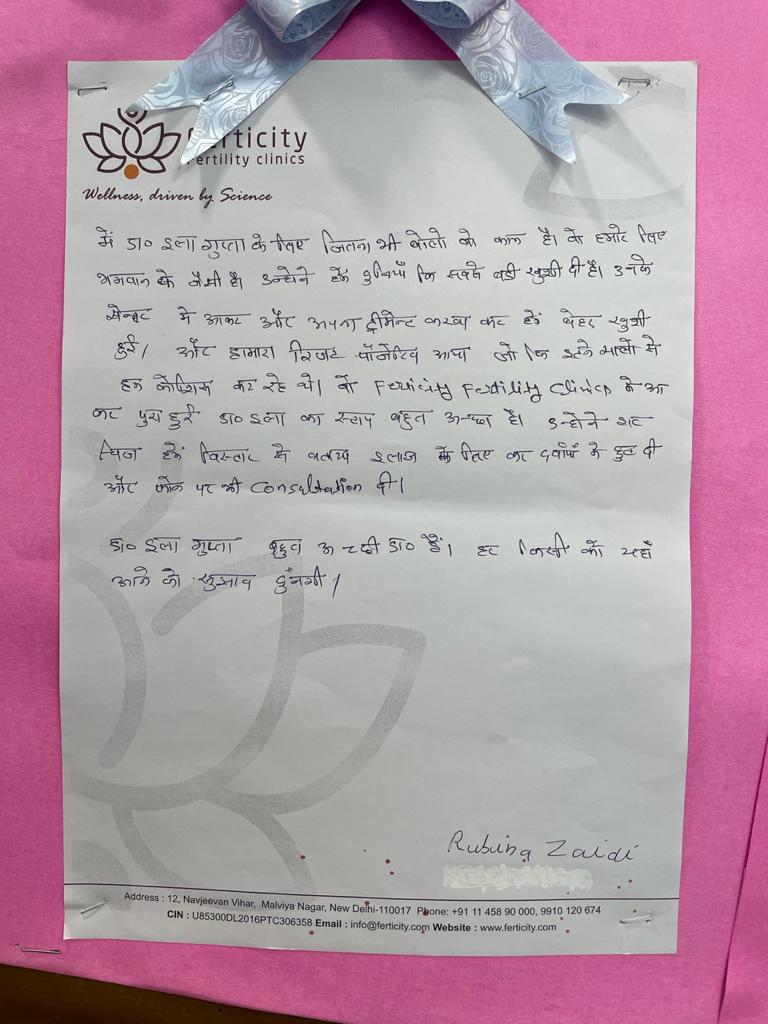 ferticity
fertility clinics
Wellness, driven by Science
में डा० इला गुप्ता के लिए जितना भी बोलो वो कम है। वो हमारे लिए
भगवान के जैसी है। उन्होने हमें दुनियाँ कि सबसे बडी खुशी दी है। उनके
सेन्टर में आकर और अपना ट्रीमेन्ट करवा कर हमें बेहद खुशी
हुई। और हामारा रिजल्ट पॉजेटिव आया जो कि इतने सालो से
हम कोशिश कर रहे थे। वो Ferticity Fertility Clinics में आ
कर पुरा हुई डा० इला का स्टाफ बहुत अच्छा है। उन्होने हर
चिज हमें विस्तार से बताया इलाज के लिए कर दवाँयों में छुट दी
और फोन पर भी Consultation दी।
डा० इला गुप्ता बहुत अच्छी डा० हैं। हर किसी को यहाँ
आने को सुझाव दुँगी।
Rubina Zaidi
Address : 12, Navjeevan Vihar, Malviya Nagar, New Delhi-110017 Phone: +91 11 458 90 000, 9910 120 674
CIN : U85300DL2016PTC306358 Email : info@ferticity.com Website : www.ferticity.com